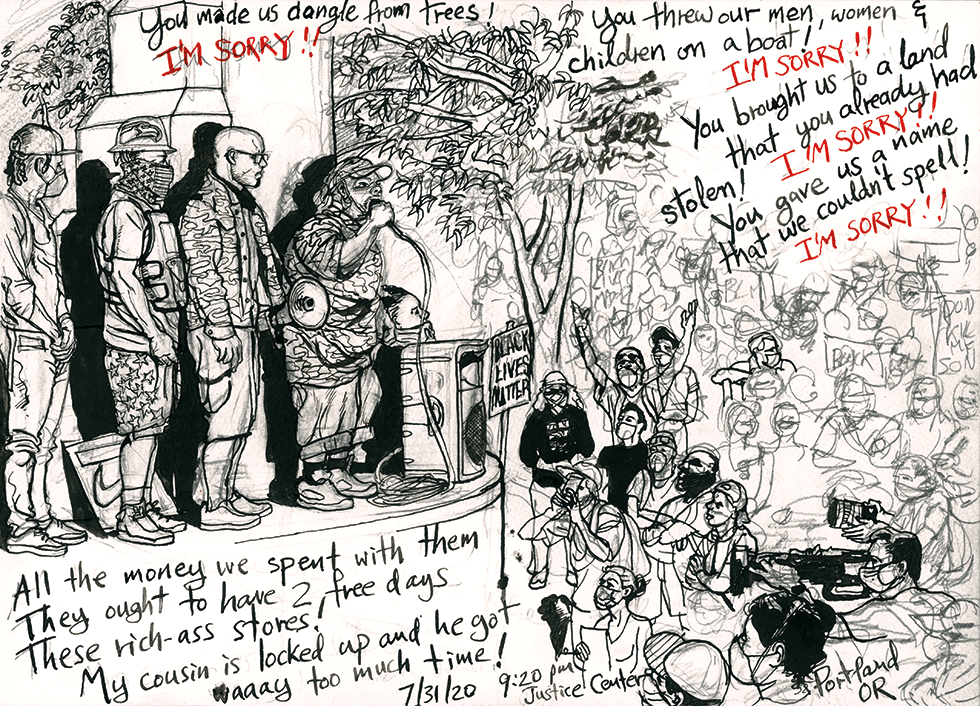 You made us dangle from trees!
I'M SORRY!!
You threw our men, women &
children on a boat!
I'M SORRY!!
You brought us to a land
that you already had
stolen!
I'M SORRY!!
You gave us a name
that we couldn't spell!
I'M SORRY!!
BLACK
LIVES
MATTER
BLACK
All the money we spent with them
They ought to have 2 free days
These rich-ass stores!
My cousin is locked up and he got
waaay too much time!
7/31/20
9:20 pm
Justice Center
Portland
OR